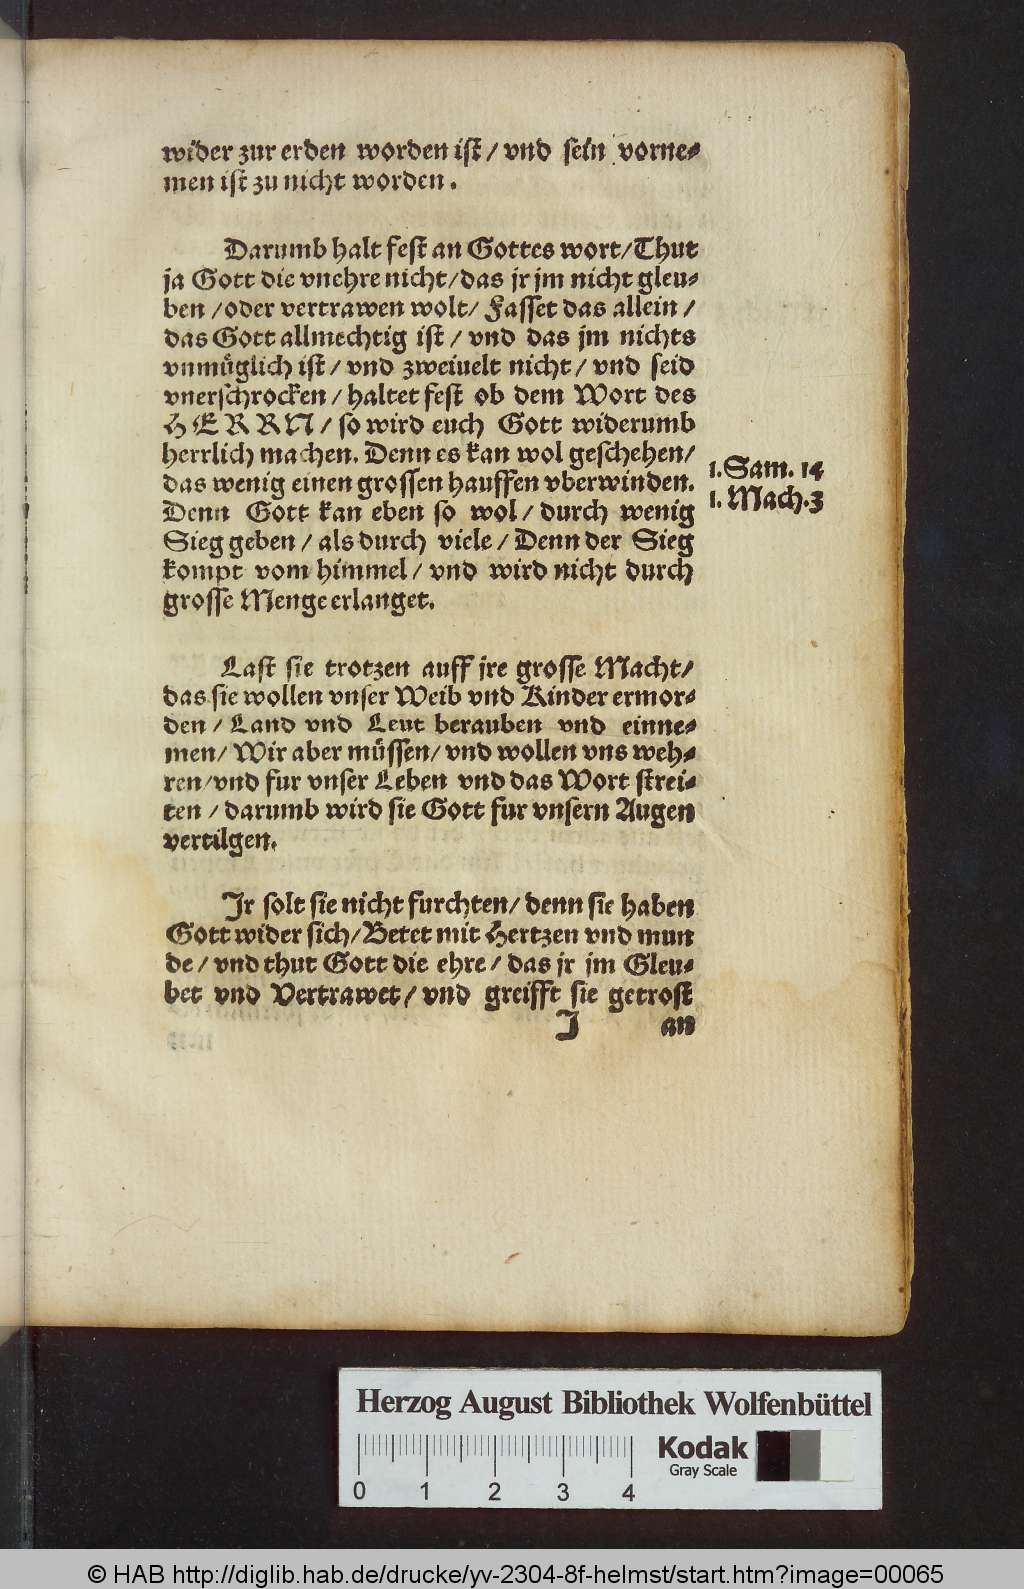 wider zur erden worden ist / vnd sein vorne-
men ist zu nicht worden.
Darumb halt fest an Gottes wort / Thut
ja Gott die vnehre nicht / das jr jm nicht gleu-
ben / oder vertrawen wolt / Fasset das allein /
das Gott allmechtig ist / vnd das jm nichts
vnmüglich ist / vnd zweiuelt nicht / vnd seid
vnerschrocken / haltet fest ob dem Wort des
HERRN / so wird euch Gott widerumb
herrlich machen. Denn es kan wol geschehen /
das wenig einen grossen hauffen vberwinden.
1. Sam. 14
1. Mach. 3
Denn Gott kan eben so wol / durch wenig
Sieg geben / als durch viele / Denn der Sieg
kompt vom himmel / vnd wird nicht durch
grosse Menge erlanget.
Last sie trotzen auff jre grosse Macht /
das sie wollen vnser Weib vnd Kinder ermor-
den / Land vnd Leut berauben vnd einne-
men / Wir aber müssen / vnd wollen vns weh-
ren / vnd fur vnser Leben vnd das Wort strei-
ten / darumb wird sie Gott fur vnsern Augen
vertilgen.
Jr solt sie nicht furchten / denn sie haben
Gott wider sich / Betet mit Hertzen vnd mun
de / vnd thut Gott die ehre / das jr jm Gleu-
bet vnd Vertrawet / vnd greifft sie getrost
J an
Herzog August Bibliothek Wolfenbüttel
Kodak
Gray Scale
0 1 2 3 4
© HAB http://diglib.hab.de/drucke/yv-2304-8f-helmst/start.htm?image=00065